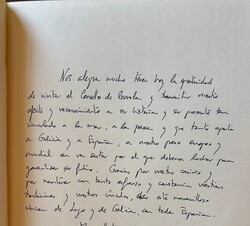 Nos alegra mucho tener hoy la oportunidad
de visitar el Concello de Burela y transmitir nuestro
afecto y reconocimiento a su historia y su presente tan
vinculado a la mar, a la pesca y que tanto aporta
a Galicia y a España, a nuestra pesca europea y
mundial en un sector por el que debemos luchar para
garantizar su futuro. Gracias por vuestro cariño y
por mantener con tanto esfuerzo y constancia vuestras
tradiciones y vuestros vínculos, desde este maravilloso
rincón de Lugo y de Galicia, con toda España.